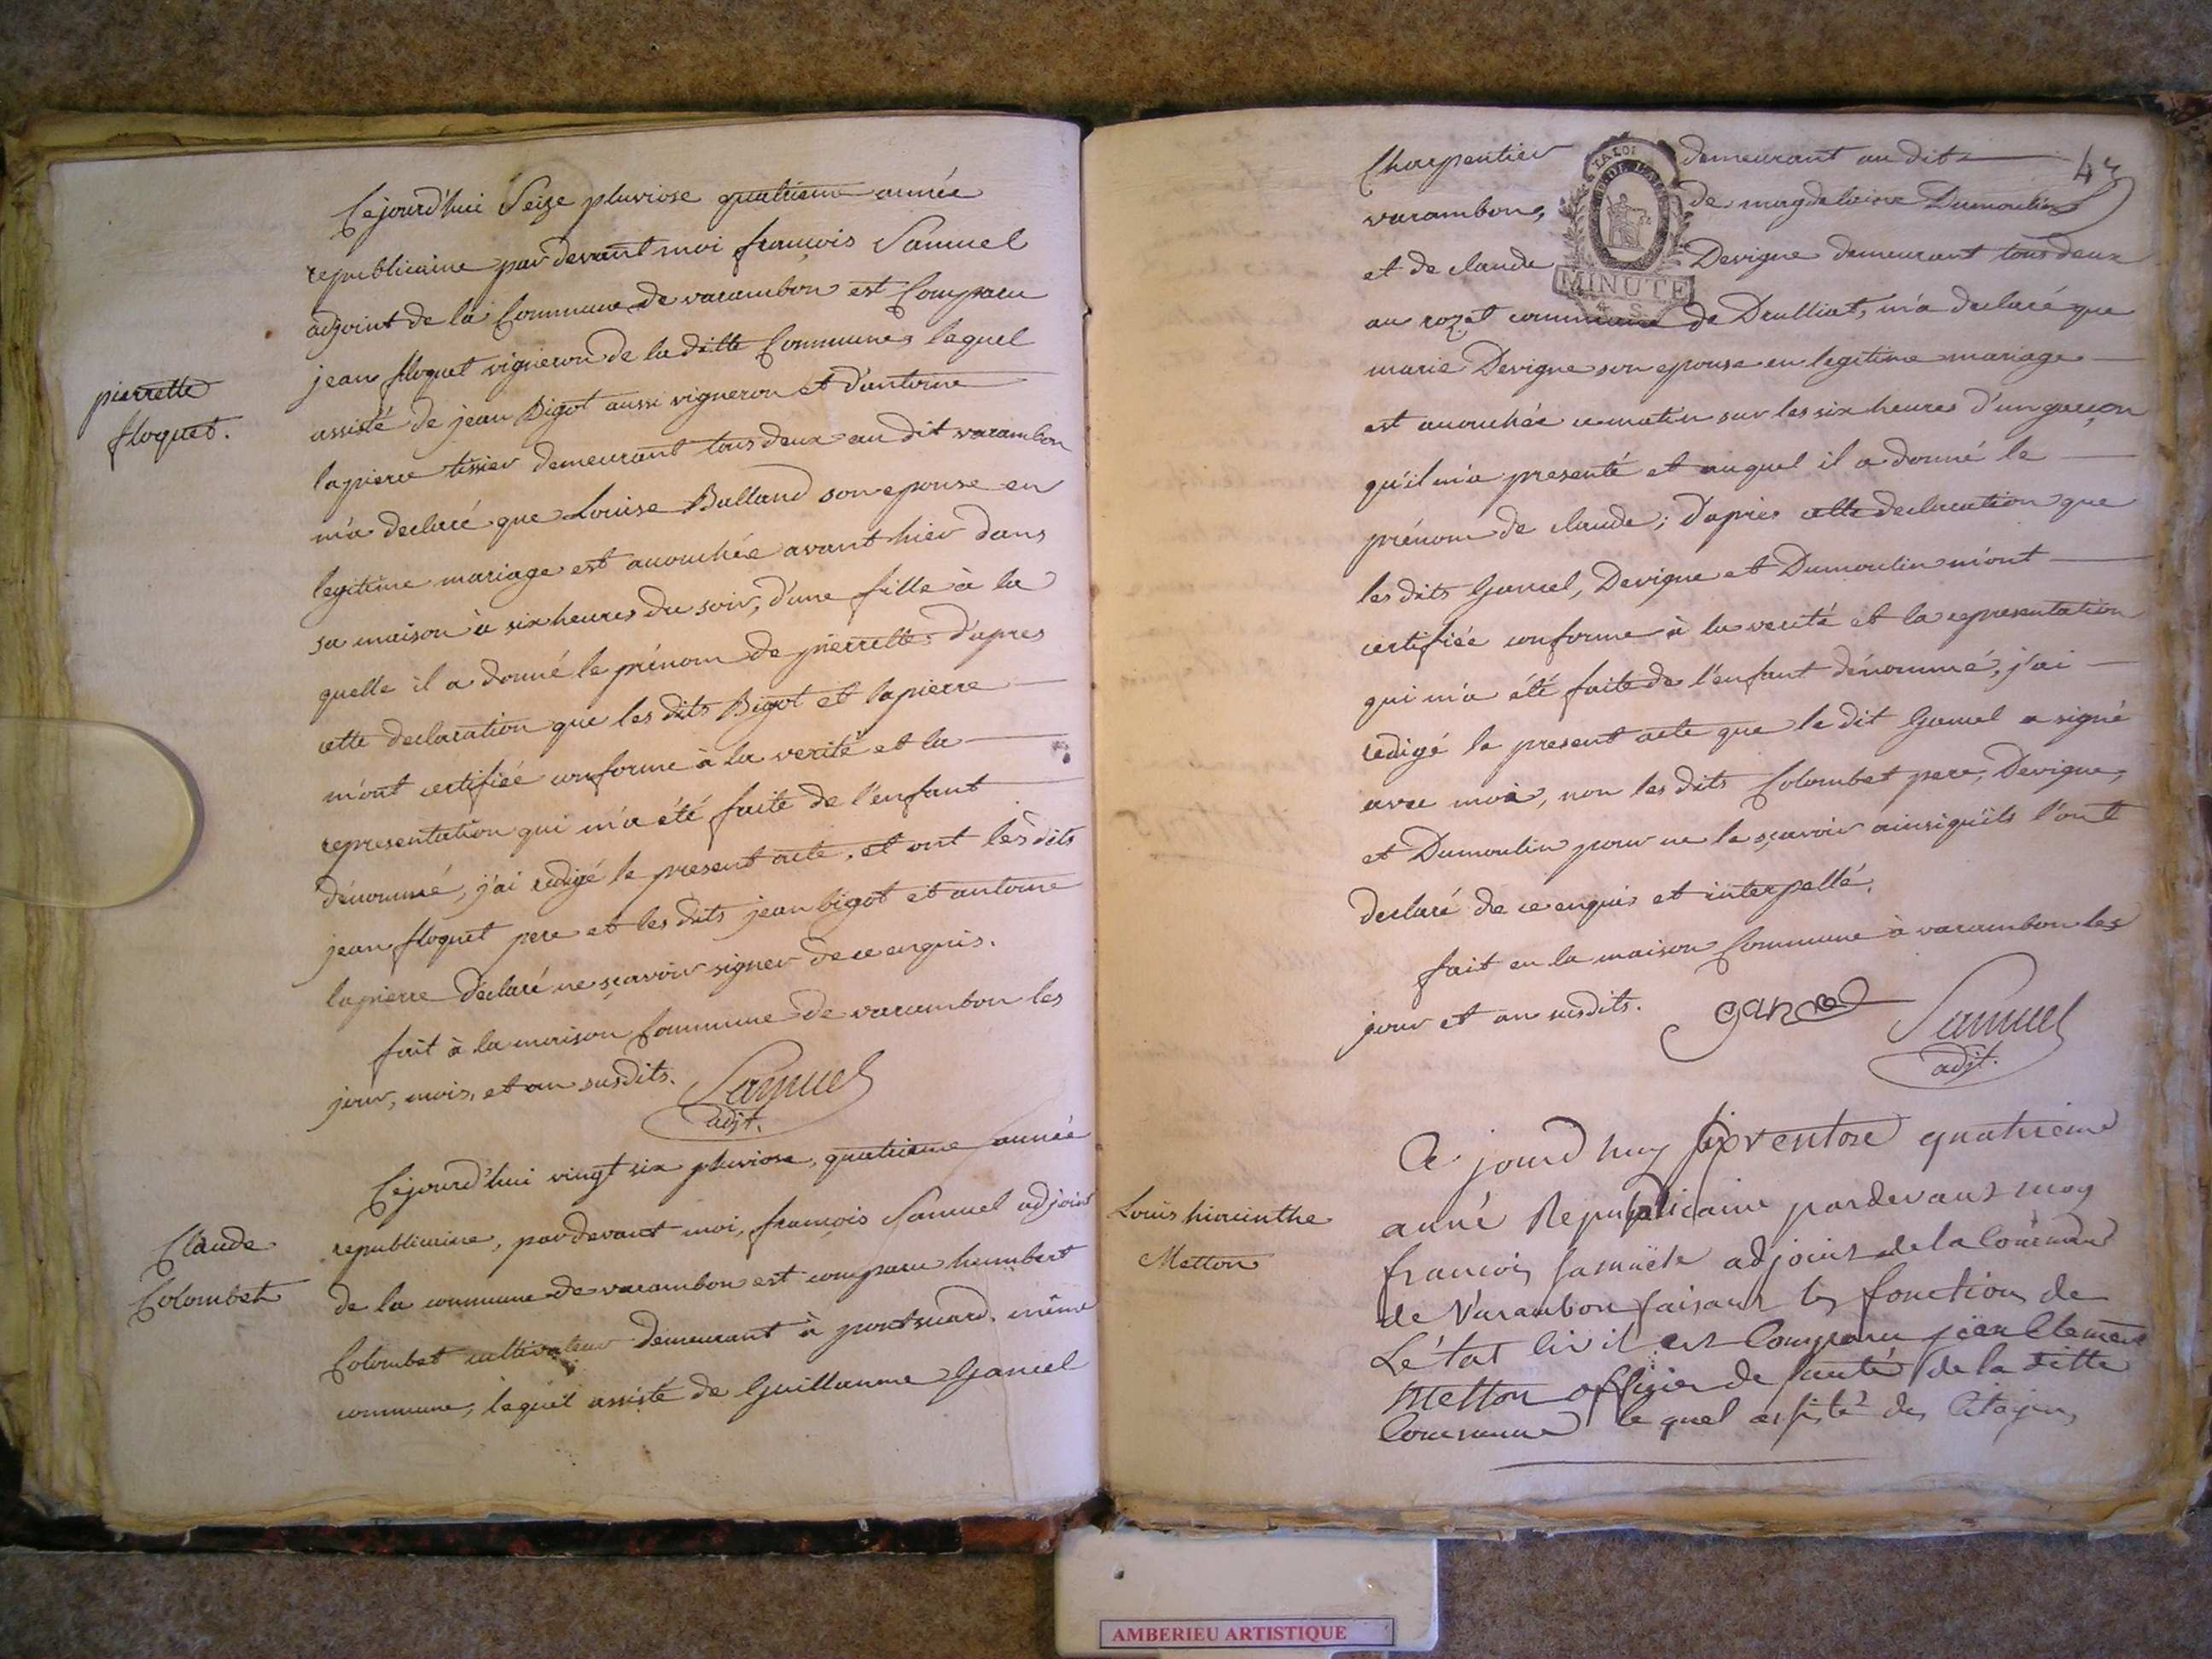 Cejourd'hui Seize pluviose quatrieme année
republicaine par devant moi françois Samuel
adjoint de la Commune de varambon est Comparu
jean floquet vigneron de la ditte Commune, lequel
pierrette
floquet.
assisté de jean Bigot aussi vigneron et d'antoine
lapierre tissier demeurant tous deux au dit varambon
m'a declaré que Louise Balland son epouse en
legitime mariage est accouchée avant hier dans
sa maison à six heures du soir, d'une fille à la
quelle il a donné le prénom de pierrette, d'apres
cette declaration que les dits Bigot et lapierre
m'ont certifiée conforme à la verité et la
representation qui m'a été faite de l'enfant
dénommé, j'ai redigé le present acte, et ont les dits
jean floquet pere et les dits jean bigot et antoine
lapierre déclaré ne sçavoir signer de ce enquis.
fait à la maison Commune de varambon les
jour, mois, et an susdits. Samuel
adjt.
Cejourd'hui vingt six pluviose, quatrieme année
republicaine, pardevant moi, françois Samuel adjoint
Claude
Colombet
de la commune de varambon est comparu humbert
Colombet cultivateur demeurant à pontsuard, même
commune, lequel assisté de Guillaume Gancel
Charpentier demeurant au dit 
varambon, de magdelaine Dumoulin
et de claude Devigne demeurant tous deux
au rozet commune de Druilliat, m'a declaré que
marie Devigne son epouse en legitime mariage
est accouchée ce matin sur les six heures d'un garçon
qu'il m'a presenté et auquel il a donné le
prénom de claude; d'apries cette declaration que
les dits Gancel, Devigne et Dumoulin m'ont
certifiée conforme à la verité et la representation
qui m'a été faite de l'enfant dénommé, j'ai
redigé le present acte que le dit Gancel a signé
avec moi, non les dits Colombet pere, Devigne,
et Dumoulin pour ne le sçavoir ainsi qu'ils l'ont
declaré de ce enquis et interpellé.
fait en la maison Commune à varambon les
jour et an susdits. gancel Samuel
adjt.
Ce jourd huy six ventose quatrieme
Louis hiacinthe
Metton
anné Republicaine pardevant moy
francois Samuel adjoint de la Commune
de Varambon faisant les fonction de
Le'tat Civil est Comparu jean Clement
Metton offisier de santé de la ditte
Commune le quel assisté des Citoyens
LA LOI
MINUTE
4 S.
AMBERIEU ARTISTIQUE